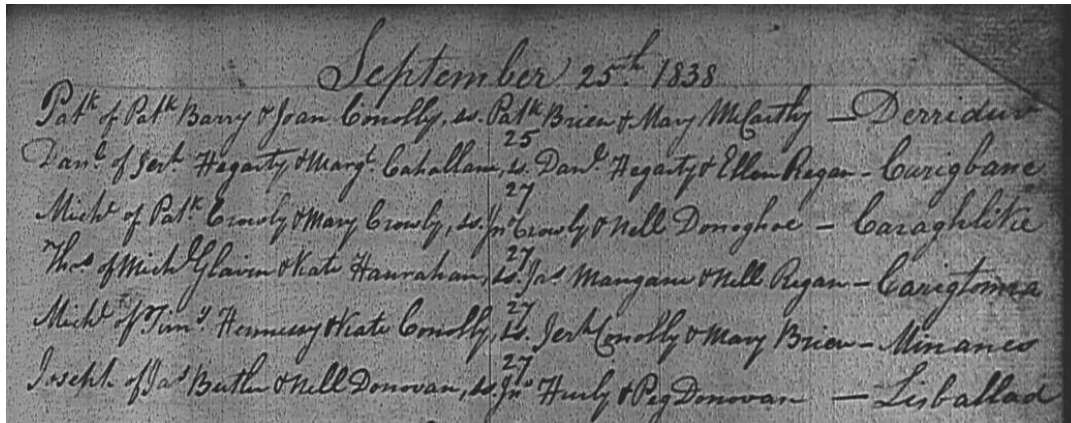 September 25th 1838
Patk of Patk Barry & Joan Conolly, ss. Patk Brien & Mary McCarthy — Derriduv
25
Danl of Jerh Hegarty & Margt Cahallane, ss. Danl Hegarty & Ellen Regan - Carigbane
27
Michl of Patk Crowly & Mary Crowly, ss. Jno Crowly & Nell Donoghoe - Caraghlike
27
Thos of Michl Glavin & Kate Hanrahan, ss. Jas Mangane & Nell Regan - Carigtoma
27
Michl of Timy Hennessy & Kate Conolly, ss. Jerh Conolly & Mary Brien - Minanes
27
Joseph of Jas Butler & Nell Donovan, ss. Jno Hurly & Peg Donovan — Lisballad